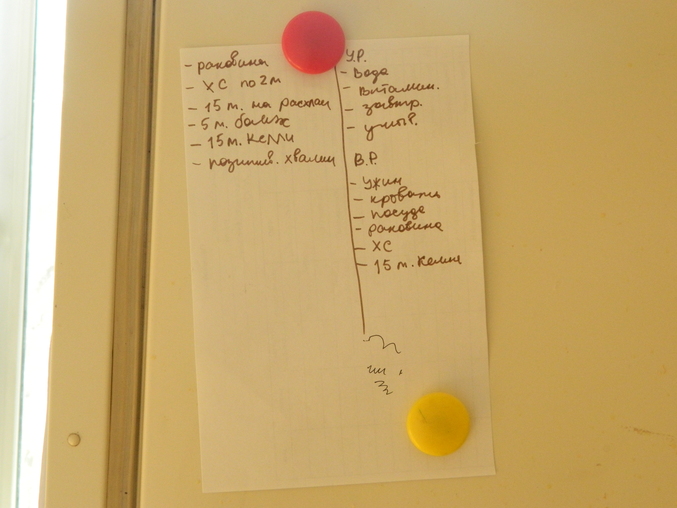 - раковина
- ХС по 2 м
- 15 м. на расхлам
- 5 м.
- 15 м. Келли
- позитив. хвалим
У.Р.
- Вода
- Витамин.
- завтр.
- умыв.
В.Р.
- Ужин
- кровать
- посуда
- раковина
- ХС
- 15 м. Келли